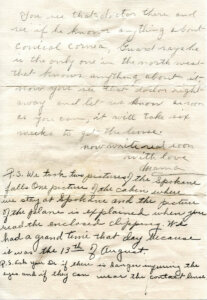 You see that doctor there and
see if he knows anything about
Conical Cornea, Guard says he
is the only one in the north west
that knows anything about it.
now you see that doctor right
away and let us know as soon
as you can, it will take six
weeks to get the lense.
now write real soon
with love
Mama
P.S. We took two pictures of the Spokane
falls One picture of the cabin where
we stay at Spokane and the picture
of the plane is explained when you
read the enclosed clipping. We
had a grand time that day because
it was the 13th of August.
P.S. Ask you Dr. if there is danger injuring the
eyes and if they can wear the contact lens